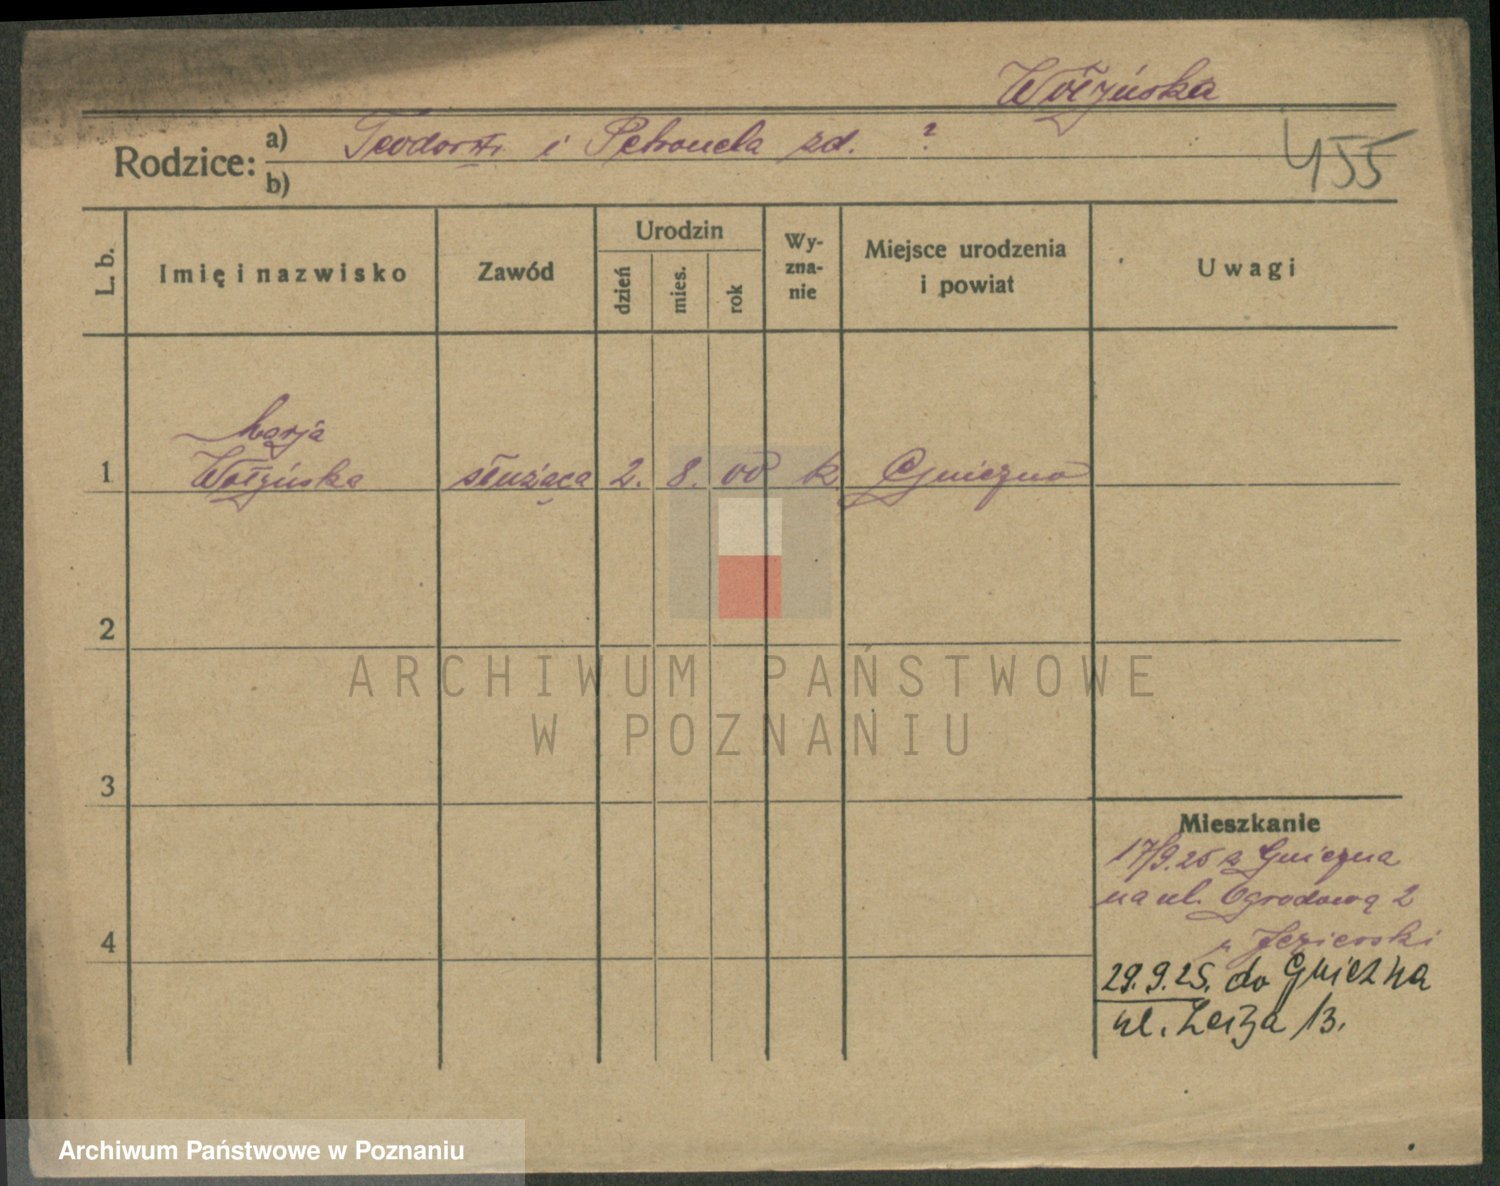 Wołyńska
Rodzice: a) Teodor i Petronela zd. ?
b)
455
L. b.
Imię i nazwisko
Zawód
Urodzin
dzień
mies.
rok
Wy-
zna-
nie
Miejsce urodzenia
i powiat
Uwagi
Marja
1 Wołyńska służąca 2. 8. 00 k Gniezno
2
3
4
ARCHIWUM PAŃSTWOWE
W POZNANIU
Mieszkanie
17/9.25 z Gniezna
na ul. Ogrodową 2
Jezierski
29.9.25. do Gniezna
ul. 13.
Archiwum Państwowe w Poznaniu